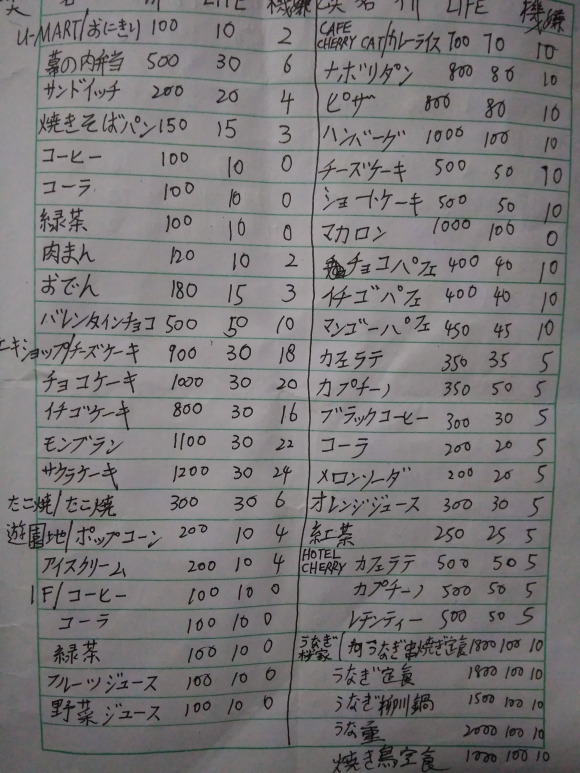 LIFE 機嫌
U-MART/おにぎり 100 10 2
幕の内弁当 500 30 6
サンドイッチ 200 20 4
焼きそばパン 150 15 3
コーヒー 100 10 0
コーラ 100 10 0
緑茶 100 10 0
肉まん 120 10 2
おでん 180 15 3
バレンタインチョコ 500 50 10
ーキショップ/チーズケーキ 900 30 18
チョコケーキ 1000 30 20
イチゴケーキ 800 30 16
モンブラン 1100 30 22
サクラケーキ 1200 30 24
たこ焼/たこ焼 300 30 6
遊園地/ポップコーン 200 10 4
アイスクリーム 200 10 4
1F/コーヒー 100 10 0
コーラ 100 10 0
緑茶 100 10 0
フルーツジュース 100 10 0
野菜ジュース 100 10 0
LIFE 機嫌
CAFE
CHERRY CAT/カレーライス 700 70 10
ナポリタン 800 80 10
ピザ 800 80 10
ハンバーグ 1000 100 10
チーズケーキ 500 50 10
ショートケーキ 500 50 10
マカロン 1000 100 0
チョコパフェ 400 40 10
イチゴパフェ 400 40 10
マンゴーパフェ 450 45 10
カフェラテ 350 35 5
カプチーノ 350 50 5
ブラックコーヒー 300 30 5
コーラ 200 20 5
メロンソーダ 200 20 5
オレンジジュース 300 30 5
紅茶 250 25 5
HOTEL
CHERRY カフェラテ 500 50 5
カプチーノ 500 50 5
レモンティー 500 50 5
うなぎ うなぎ串焼き定食 1800 100 10
うなぎ定食 1800 100 10
うなぎ柳川鍋 1500 100 10
うな重 2000 100 10
焼き鳥定食 1000 100 10